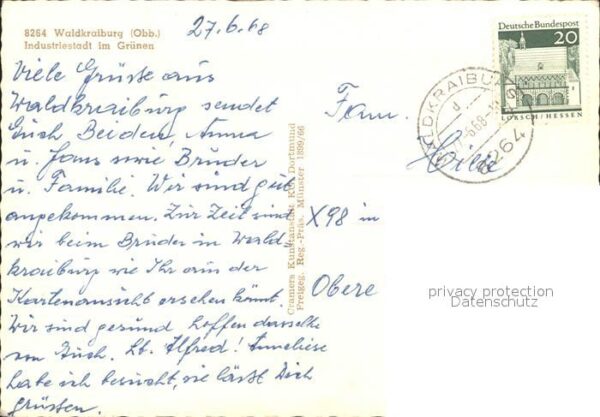 8264 Waldkraiburg (Obb.)
Industriestadt im Grünen
27.6.68
Viele Grüsse aus
Waldkraiburg sendet
Euch Beiden, Anna
u. Hans sowie Bruder
u. Familie. Wir sind gut
angekommen. Zur Zeit sind
wir beim Bruder in Wald-
kraiburg wie Ihr aus der
Kartenansicht ersehen könnt.
Wir sind gesund hoffen dasselbe
von Euch. Lb. Alfred! Anneliese
habe ich besucht, sie lässt Dich
grüssen.
Cramers Kunstanstalt KG. Dortmund
Freigeg. Reg.-Präs. Münster 1899/66
Deutsche Bundespost
20
LORSCH/HESSEN
WALDKRAIBURG
d
6.68
8264
Fam.
X98 in
Obere
privacy protection
Datenschutz